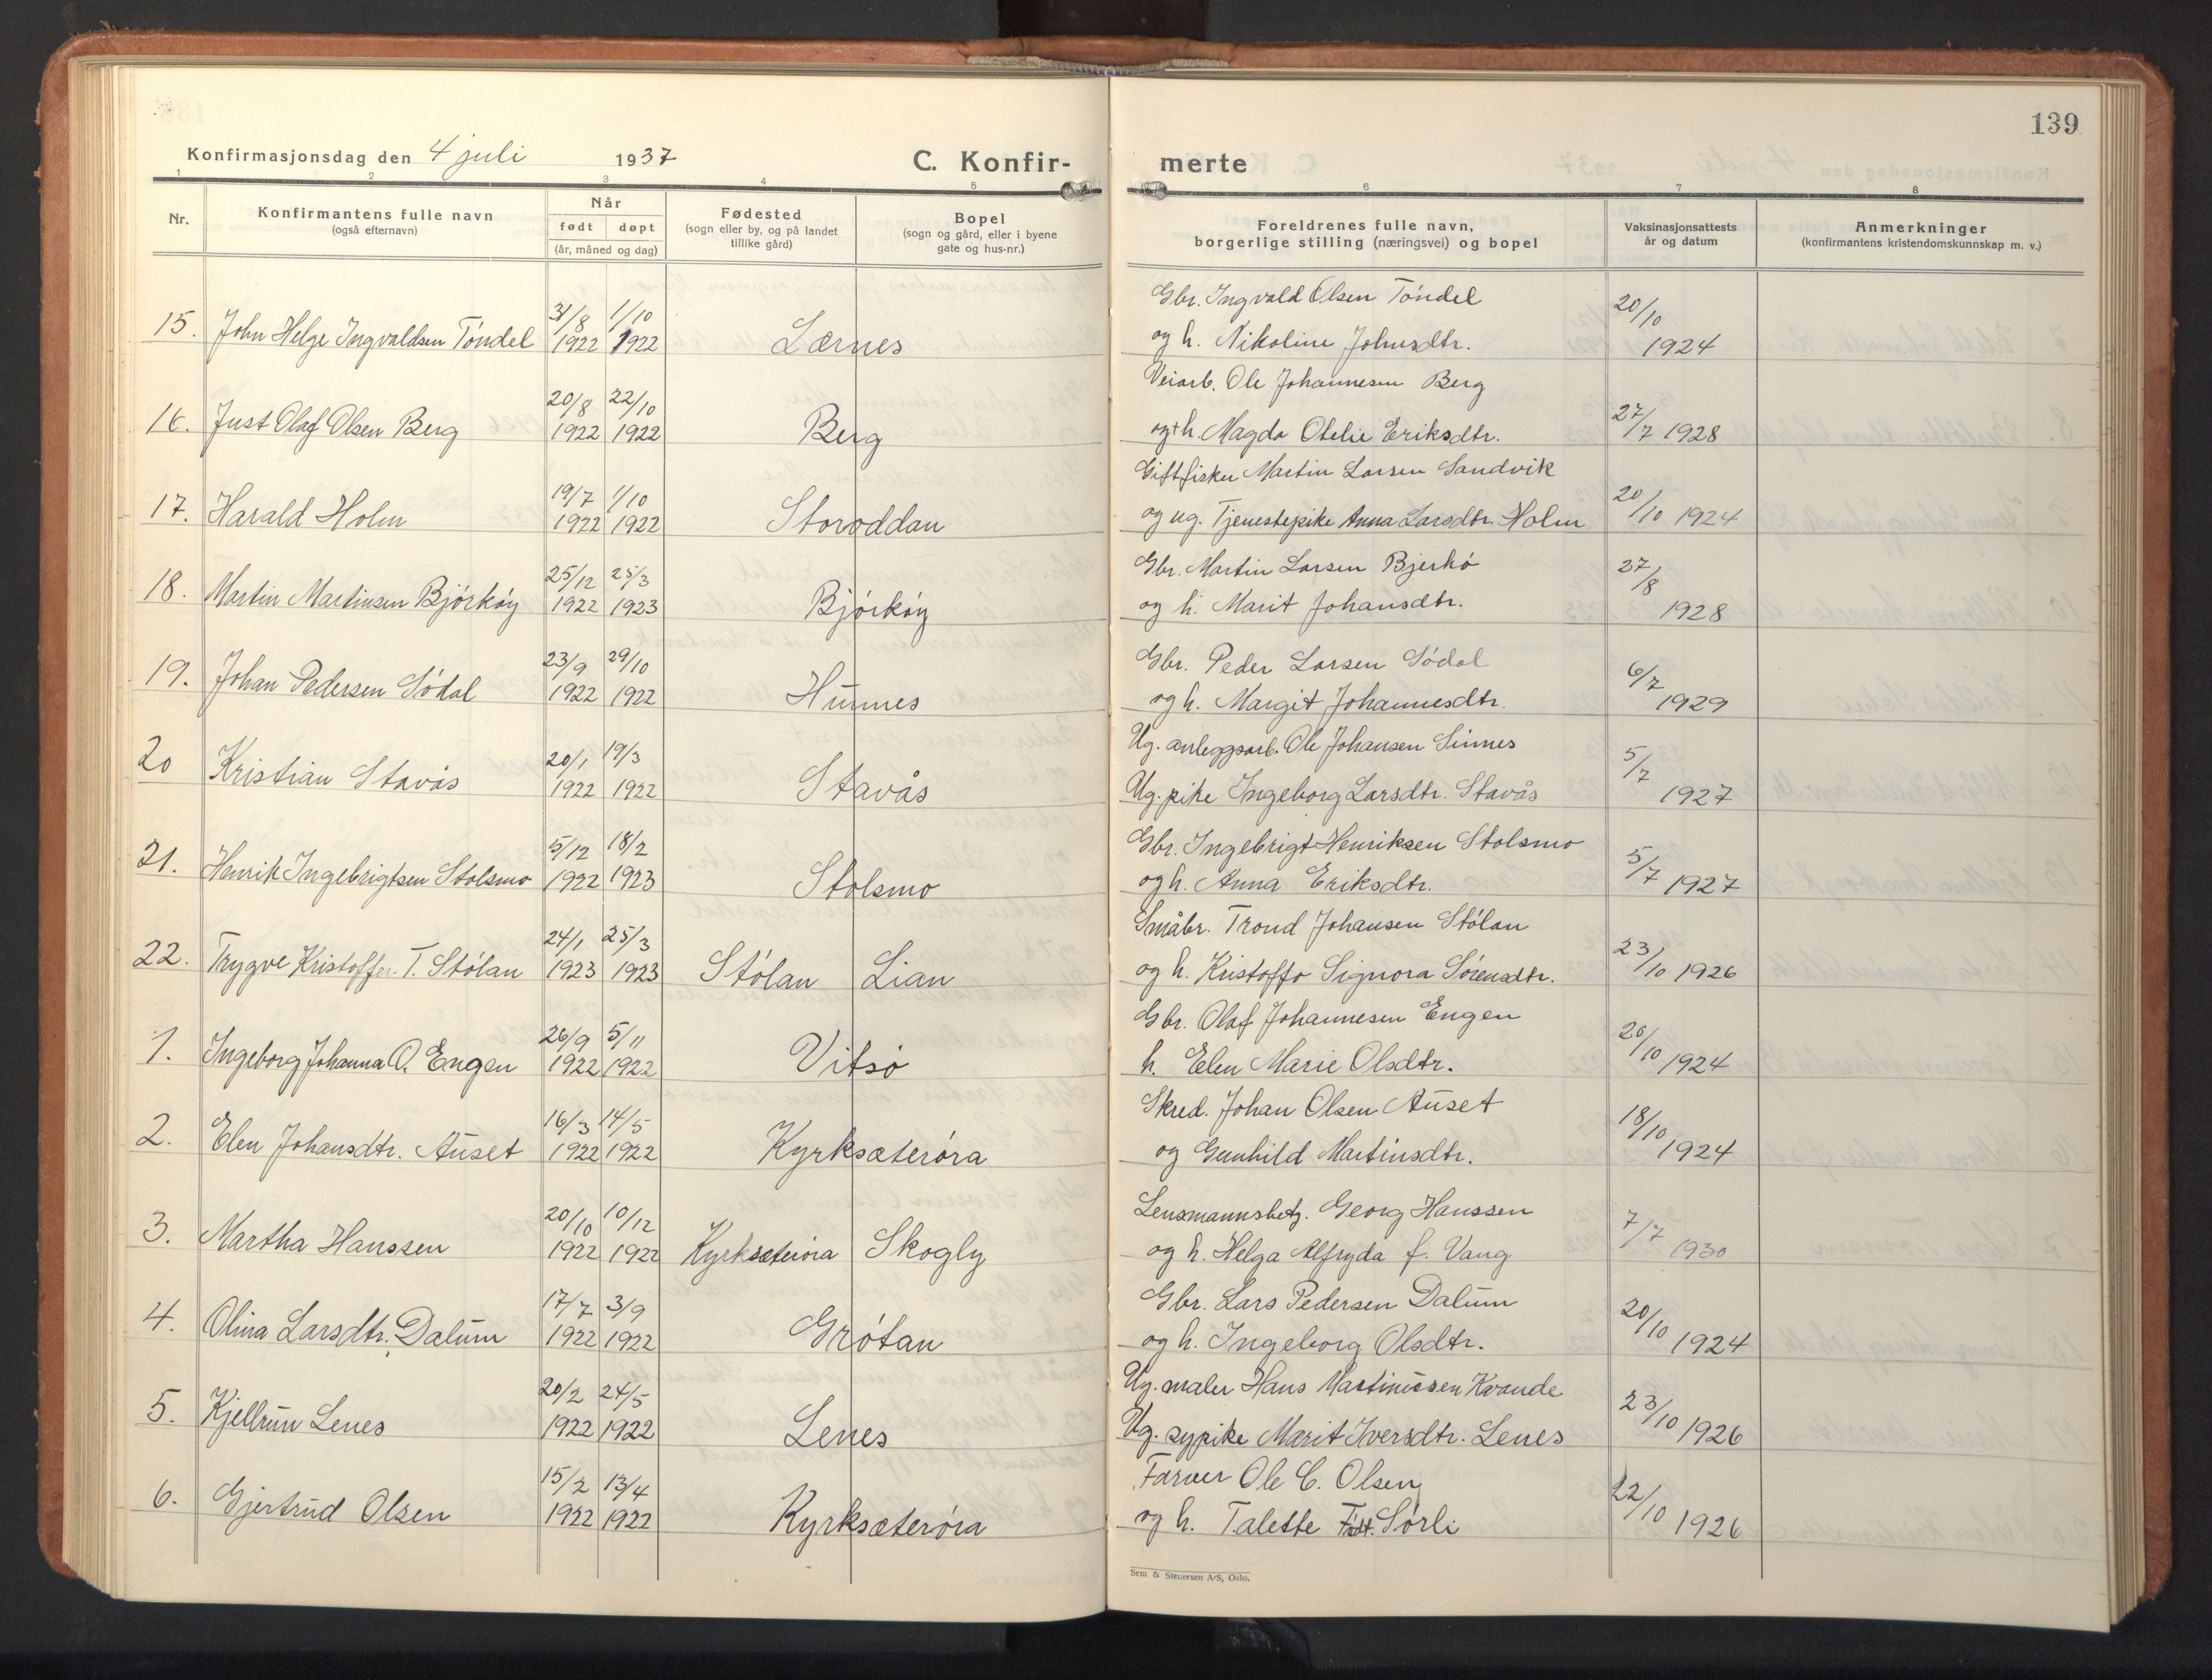 139
Konfirmasjonsdag den 4 juli 1937
C. Konfir- merte
1 2 3 4 5 6 7 8
Nr.
Konfirmantens fulle navn
(også efternavn)
Når
født døpt
(år, måned og dag)
Fødested
(sogn eller by, og på landet
tillike gård)
Bopel
(sogn og gård, eller i byene
gate og hus-nr.)
Foreldrenes fulle navn,
borgerlige stilling (næringsvei) og bopel
Vaksinasjonsattests
år og datum
Anmerkninger
(konfirmantens kristendomskunnskap m. v.)
31/8 1/10 Gbr. Ingvald Olsen Tøndel 20/10
15. John Helge Ingvaldsen Tøndel 1922 1922 Lernes og h. Nikoline Johnsdtr. 1924
20/8 22/10 Veiarb. Ole Johannesen Berg
16. Just Olaf Olsen Berg 1922 1922 Berg og h. Magda Otelie Eriksdtr. 27/7 1928
19/7 1/10 Gift fisker Martin Larsen Sandvik
17. Harald Holm 1922 1922 Storoddan og ug. Tjenestepike Anna Larsdtr. Holm 20/10 1924
25/12 25/3 Gbr. Martin Larsen Bjerkø 27/8
18. Martin Martinsen Bjørkøy 1922 1923 Bjørkøy og h. Marit Johansdtr. 1928
23/9 29/10 Gbr. Peder Larsen Sødal 6/7
19. Johan Pedersen Sødal 1922 1922 Hunnes og h. Margit Johannesdtr. 1929
20/1 19/3 Ug. anleggsarb. Ole Johansen Sinnes 5/7
20 Kristian Stavås 1922 1922 Stavås Ug. pike Ingeborg Larsdtr. Stavås 1927
5/12 18/2 Gbr. Ingebrigt Henriksen Stolsmo
21. Henrik Ingebrigtsen Stolsmo 1922 1923 Stolsmo og h. Anna Eriksdtr. 5/7 1927
24/1 25/3 Småbr. Trond Johansen Stølan
22. Trygve Kristoffer T. Stølan 1923 1923 Stølan Lian og h. Kristoffo Signora Sørensdtr. 23/10 1926
26/9 5/11 Gbr. Olaf Johannesen Engen
1. Ingeborg Johanna O. Engen 1922 1922 Vitsø h. Elen Marie Olsdtr. 20/10 1924
16/3 14/5 Skred. Johan Olsen Auset 18/10
2. Elen Johansdtr. Auset 1922 1922 Kyrksæterøra og Gunhild Martinsdtr. 1924
20/10 10/12 Lensmannsbetj. Georg Hanssen 7/7
3. Martha Hanssen 1922 1922 Kyrksæterøra Skogly og h. Helga Alfryda f. Vang 1930
17/7 3/9 Gbr. Lars Pedersen Dalum 20/10
4. Olina Larsdtr. Dalum 1922 1922 Grøtan og h. Ingeborg Olsdtr. 1924
20/2 24/5 Ug. maler Hans Martinussen Kvande 23/10
5. Kjellrun Lenes 1922 1922 Lenes Ug. sypike Marit Iversdtr. Lenes 1926
15/2 13/4 Farver Ole C. Olsen 22/10
6. Gjertrud Olsen 1922 1922 Kyrksæterøra og h. Talette Født. Sørli 1926
Sem & Stenersen A/S, Oslo.